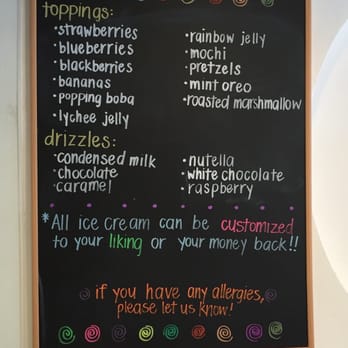 toppings:
· strawberries
· blueberries
· blackberries
· bananas
· popping boba
· lychee jelly
· rainbow jelly
· mochi
· pretzels
· mint oreo
· roasted marshmallow
drizzles:
· condensed milk
· chocolate
· caramel
· nutella
· white chocolate
· raspberry
*All ice cream can be customized
to your liking or your money back!!
if you have any allergies,
please let us know!